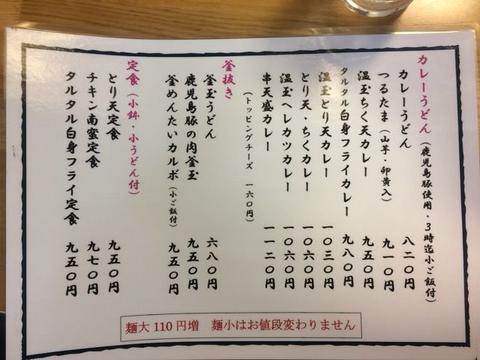 カレーうどん（鹿児島豚使用・３時迄小ご飯付）
カレーうどん 八二〇円
つるたま（山芋・卵黄入） 九一〇円
温玉ちく天カレー 九五〇円
タルタル白身フライカレー 九八〇円
温玉とり天カレー 一〇三〇円
とり天・ちくカレー 一〇六〇円
温玉ヘレカツカレー 一〇六〇円
串天盛カレー 一一二〇円
（トッピングチーズ 一六〇円）
釜抜き
釜玉うどん 六八〇円
鹿児島豚の肉釜玉 九五〇円
釜めんたいカルボ（小ご飯付） 九五〇円
定食（小鉢・小うどん付）
とり天定食 九五〇円
チキン南蛮定食 九七〇円
タルタル白身フライ定食 九五〇円
麺大 110 円増 麺小はお値段変わりません